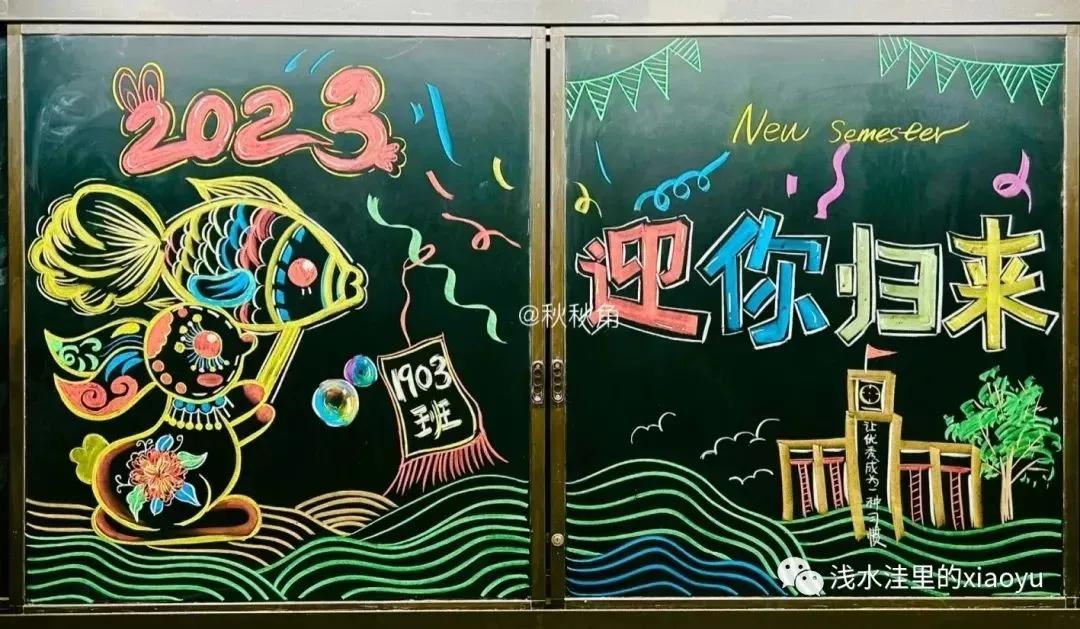 2023
1903
班
New Semester
迎你归来
让优秀成为一种习惯
@秋秋角
浅水洼里的xiaoyu